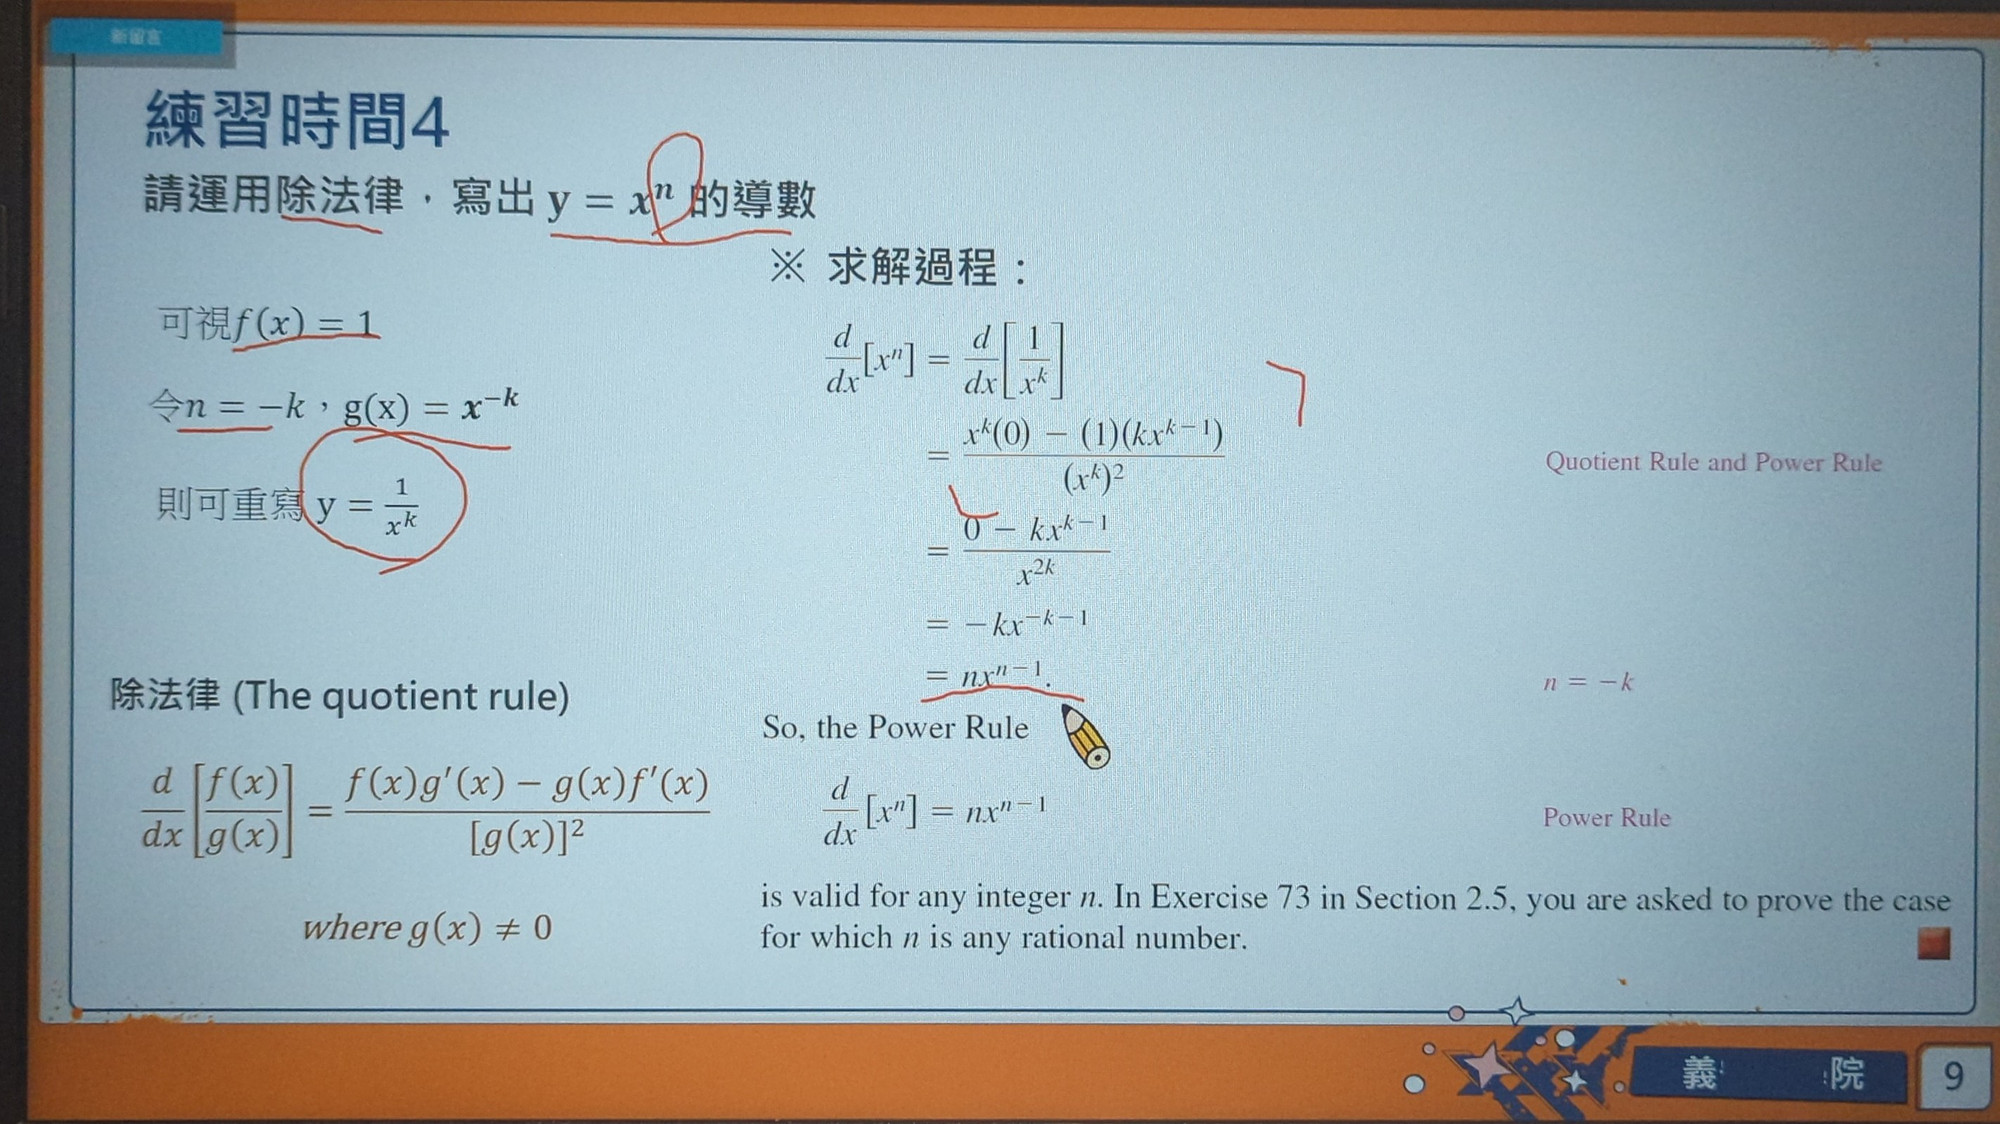 新留言
練習時間4
請運用除法律，寫出 y = xⁿ 的導數
可視f(x) = 1
令n = −k，g(x) = x⁻ᵏ
則可重寫 y = 1/xᵏ
除法律 (The quotient rule)
d/dx [f(x)/g(x)] = (f(x)g′(x) − g(x)f′(x))/[g(x)]²
where g(x) ≠ 0
※ 求解過程：
d/dx[xⁿ] = d/dx[1/xᵏ]
= (xᵏ(0) − (1)(kxᵏ⁻¹))/(xᵏ)²
Quotient Rule and Power Rule
= (0 − kxᵏ⁻¹)/x²ᵏ
= −kx⁻ᵏ⁻¹
= nxⁿ⁻¹.
n = −k
So, the Power Rule
d/dx[xⁿ] = nxⁿ⁻¹
Power Rule
is valid for any integer n. In Exercise 73 in Section 2.5, you are asked to prove the case
for which n is any rational number.
義 院
9